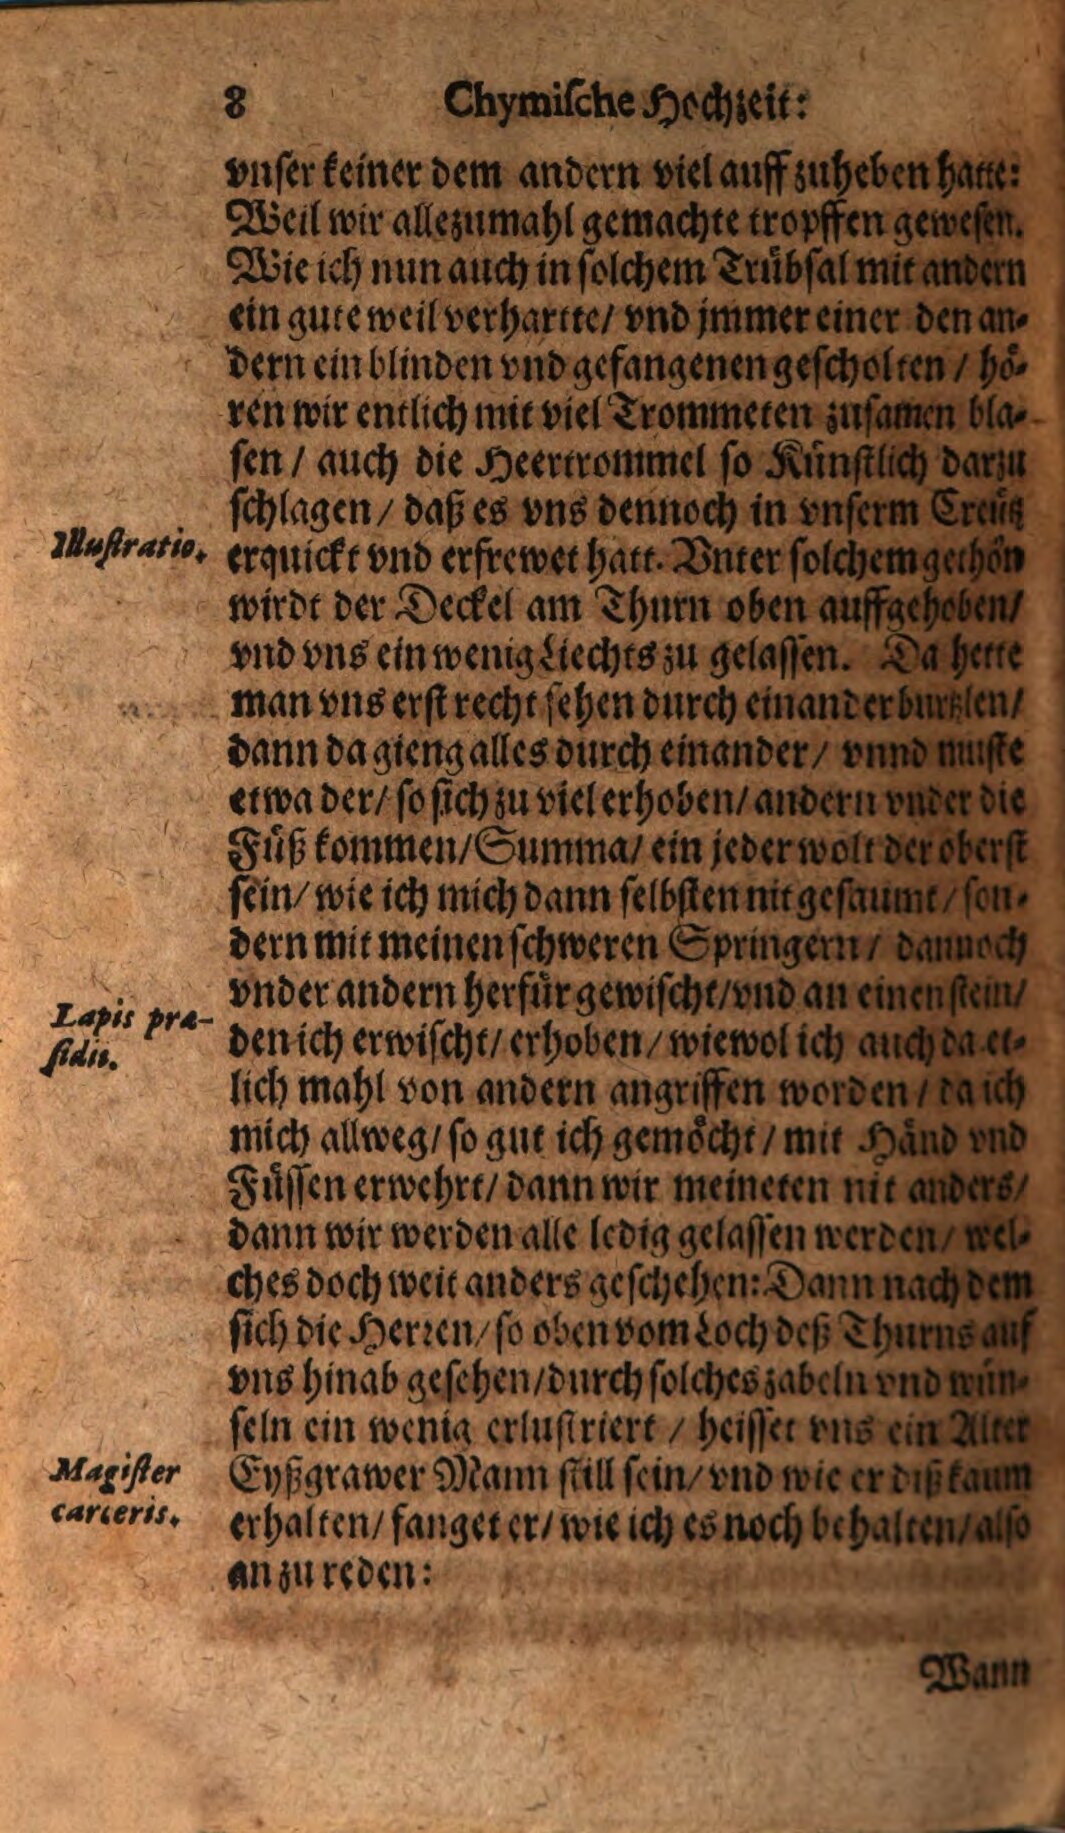 8 Chymiſche Hochzeit:
vnſer keiner dem andern viel auff zuheben hatte:
Weil wir allezumahl gemachte tropffen geweſen.
Wie ich nun auch in ſolchem Trübſal mit andern
ein gute weil verhartte/ vnd jmmer einer den an-
dern ein blinden vnd gefangenen geſcholten / hö-
ren wir entlich mit viel Trommeten zuſamen bla-
ſen / auch die Heertrommel ſo Künſtlich darzu
ſchlagen / daß es vns dennoch in vnſerm Creütz
Illuſtratio.
erquickt vnd erfrewet hatt. Vnter ſolchem gethön
wirdt der Deckel am Thurn oben auffgehoben/
vnd vns ein wenig Liechts zu gelaſſen. Da hette
man vns erſt recht ſehen durch einander burtzlen/
dann da gieng alles durch einander / vnnd muſte
etwa der/ ſo ſich zu viel erhoben/ andern vnder die
Füß kommen/ Summa/ ein jeder wolt der oberſt
ſein/ wie ich mich dann ſelbſten nit geſaumt / ſon-
dern mit meinen ſchweren Springern / dannoch
vnder andern herfür gewiſcht/ vnd an einen ſtein/
Lapis præ-
ſidii.
den ich erwiſcht/ erhoben / wiewol ich auch da et-
lich mahl von andern angriffen worden / da ich
mich allweg/ ſo gut ich gemöcht / mit Händ vnd
Füſſen erwehrt/ dann wir meineten nit anders/
dann wir werden alle ledig gelaſſen werden/ wel-
ches doch weit anders geſchehen: Dann nach dem
ſich die Herren/ ſo oben vom Loch deß Thurns auf
vns hinab geſehen/ durch ſolches zabeln vnd wün-
ſeln ein wenig erluſtriert / heiſſet vns ein Alter
Magiſter
carceris.
Eyßgrawer Mann ſtill ſein/ vnd wie er diß kaum
erhalten/ fanget er/ wie ich es noch behalten/ alſo
an zu reden:
Wann